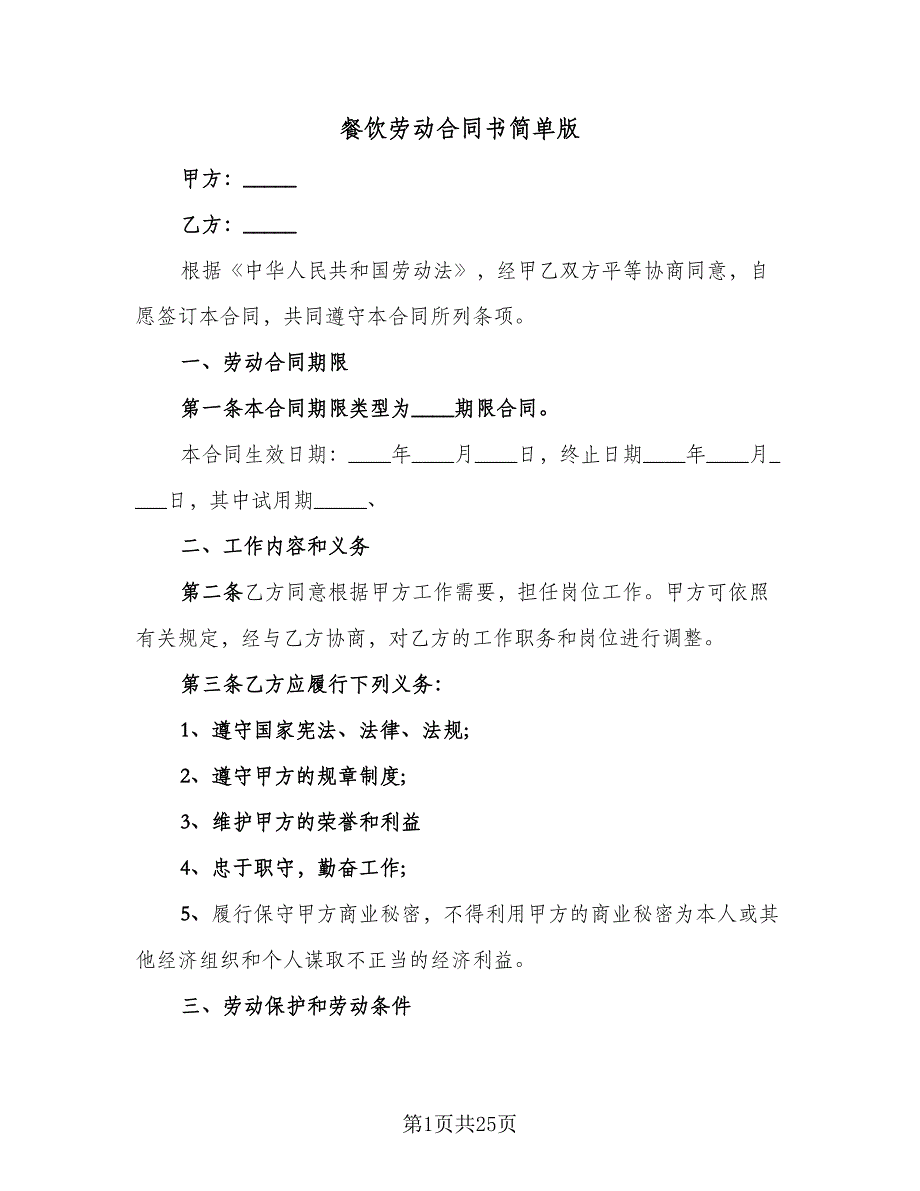 餐饮劳动合同书简单版
甲方：_____
乙方：_____
根据《中华人民共和国劳动法》，经甲乙双方平等协商同意，自
愿签订本合同，共同遵守本合同所列条项。
一、劳动合同期限
第一条本合同期限类型为____期限合同。
本合同生效日期：____年____月____日，终止日期____年____月_
___日，其中试用期_____、
二、工作内容和义务
第二条乙方同意根据甲方工作需要，担任岗位工作。甲方可依照
有关规定，经与乙方协商，对乙方的工作职务和岗位进行调整。
第三条乙方应履行下列义务：
1、遵守国家宪法、法律、法规;
2、遵守甲方的规章制度;
3、维护甲方的荣誉和利益
4、忠于职守，勤奋工作;
5、履行保守甲方商业秘密，不得利用甲方的商业秘密为本人或其
他经济组织和个人谋取不正当的经济利益。
三、劳动保护和劳动条件
第1页共25页